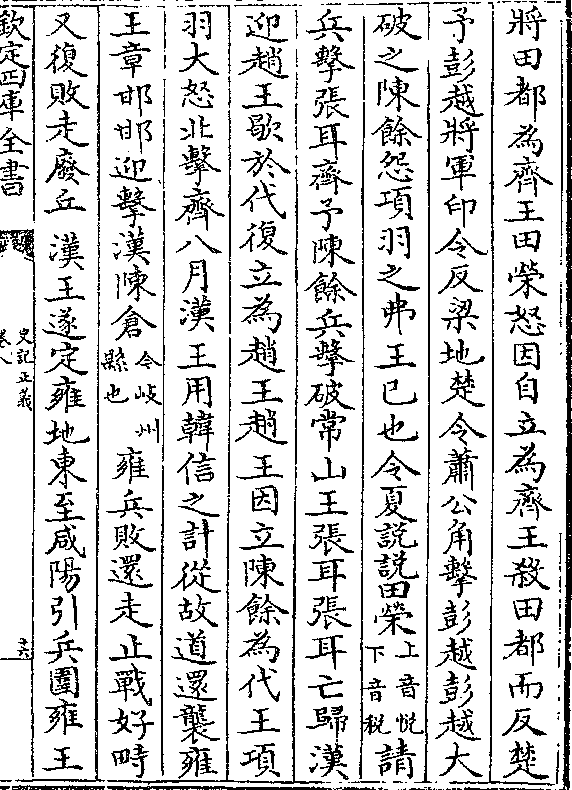 將田都為齊王田榮怒因自立為齊王殺田都而反楚
予彭越將軍印令反梁地楚令蕭公角擊彭越彭越大
破之陳餘怨項羽之弗王已也令夏説説田榮上音悦下音税請
兵擊張耳齊予陳餘兵擊破常山王張耳張耳亡歸漢
迎趙王歇於代復立為趙王趙王因立陳餘為代王項
羽大怒北擊齊八月漢王用韓信之計從故道還襲雍
王章邯邯迎擊漢陳倉今岐州縣也雍兵敗還走止戰好畤
又復敗走廢丘漢王遂定雍地東至咸陽引兵圍雍王
欽定四庫全書
史記正義
卷八
十六